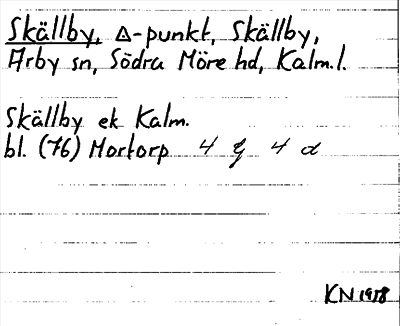 Skällby, Δ-punkt, Skällby,
Arby sn, Södra Möre hd, Kalm.l.
Skällby ek Kalm.
bl. (76) Mortorp 4 g 4 d
KN 1958